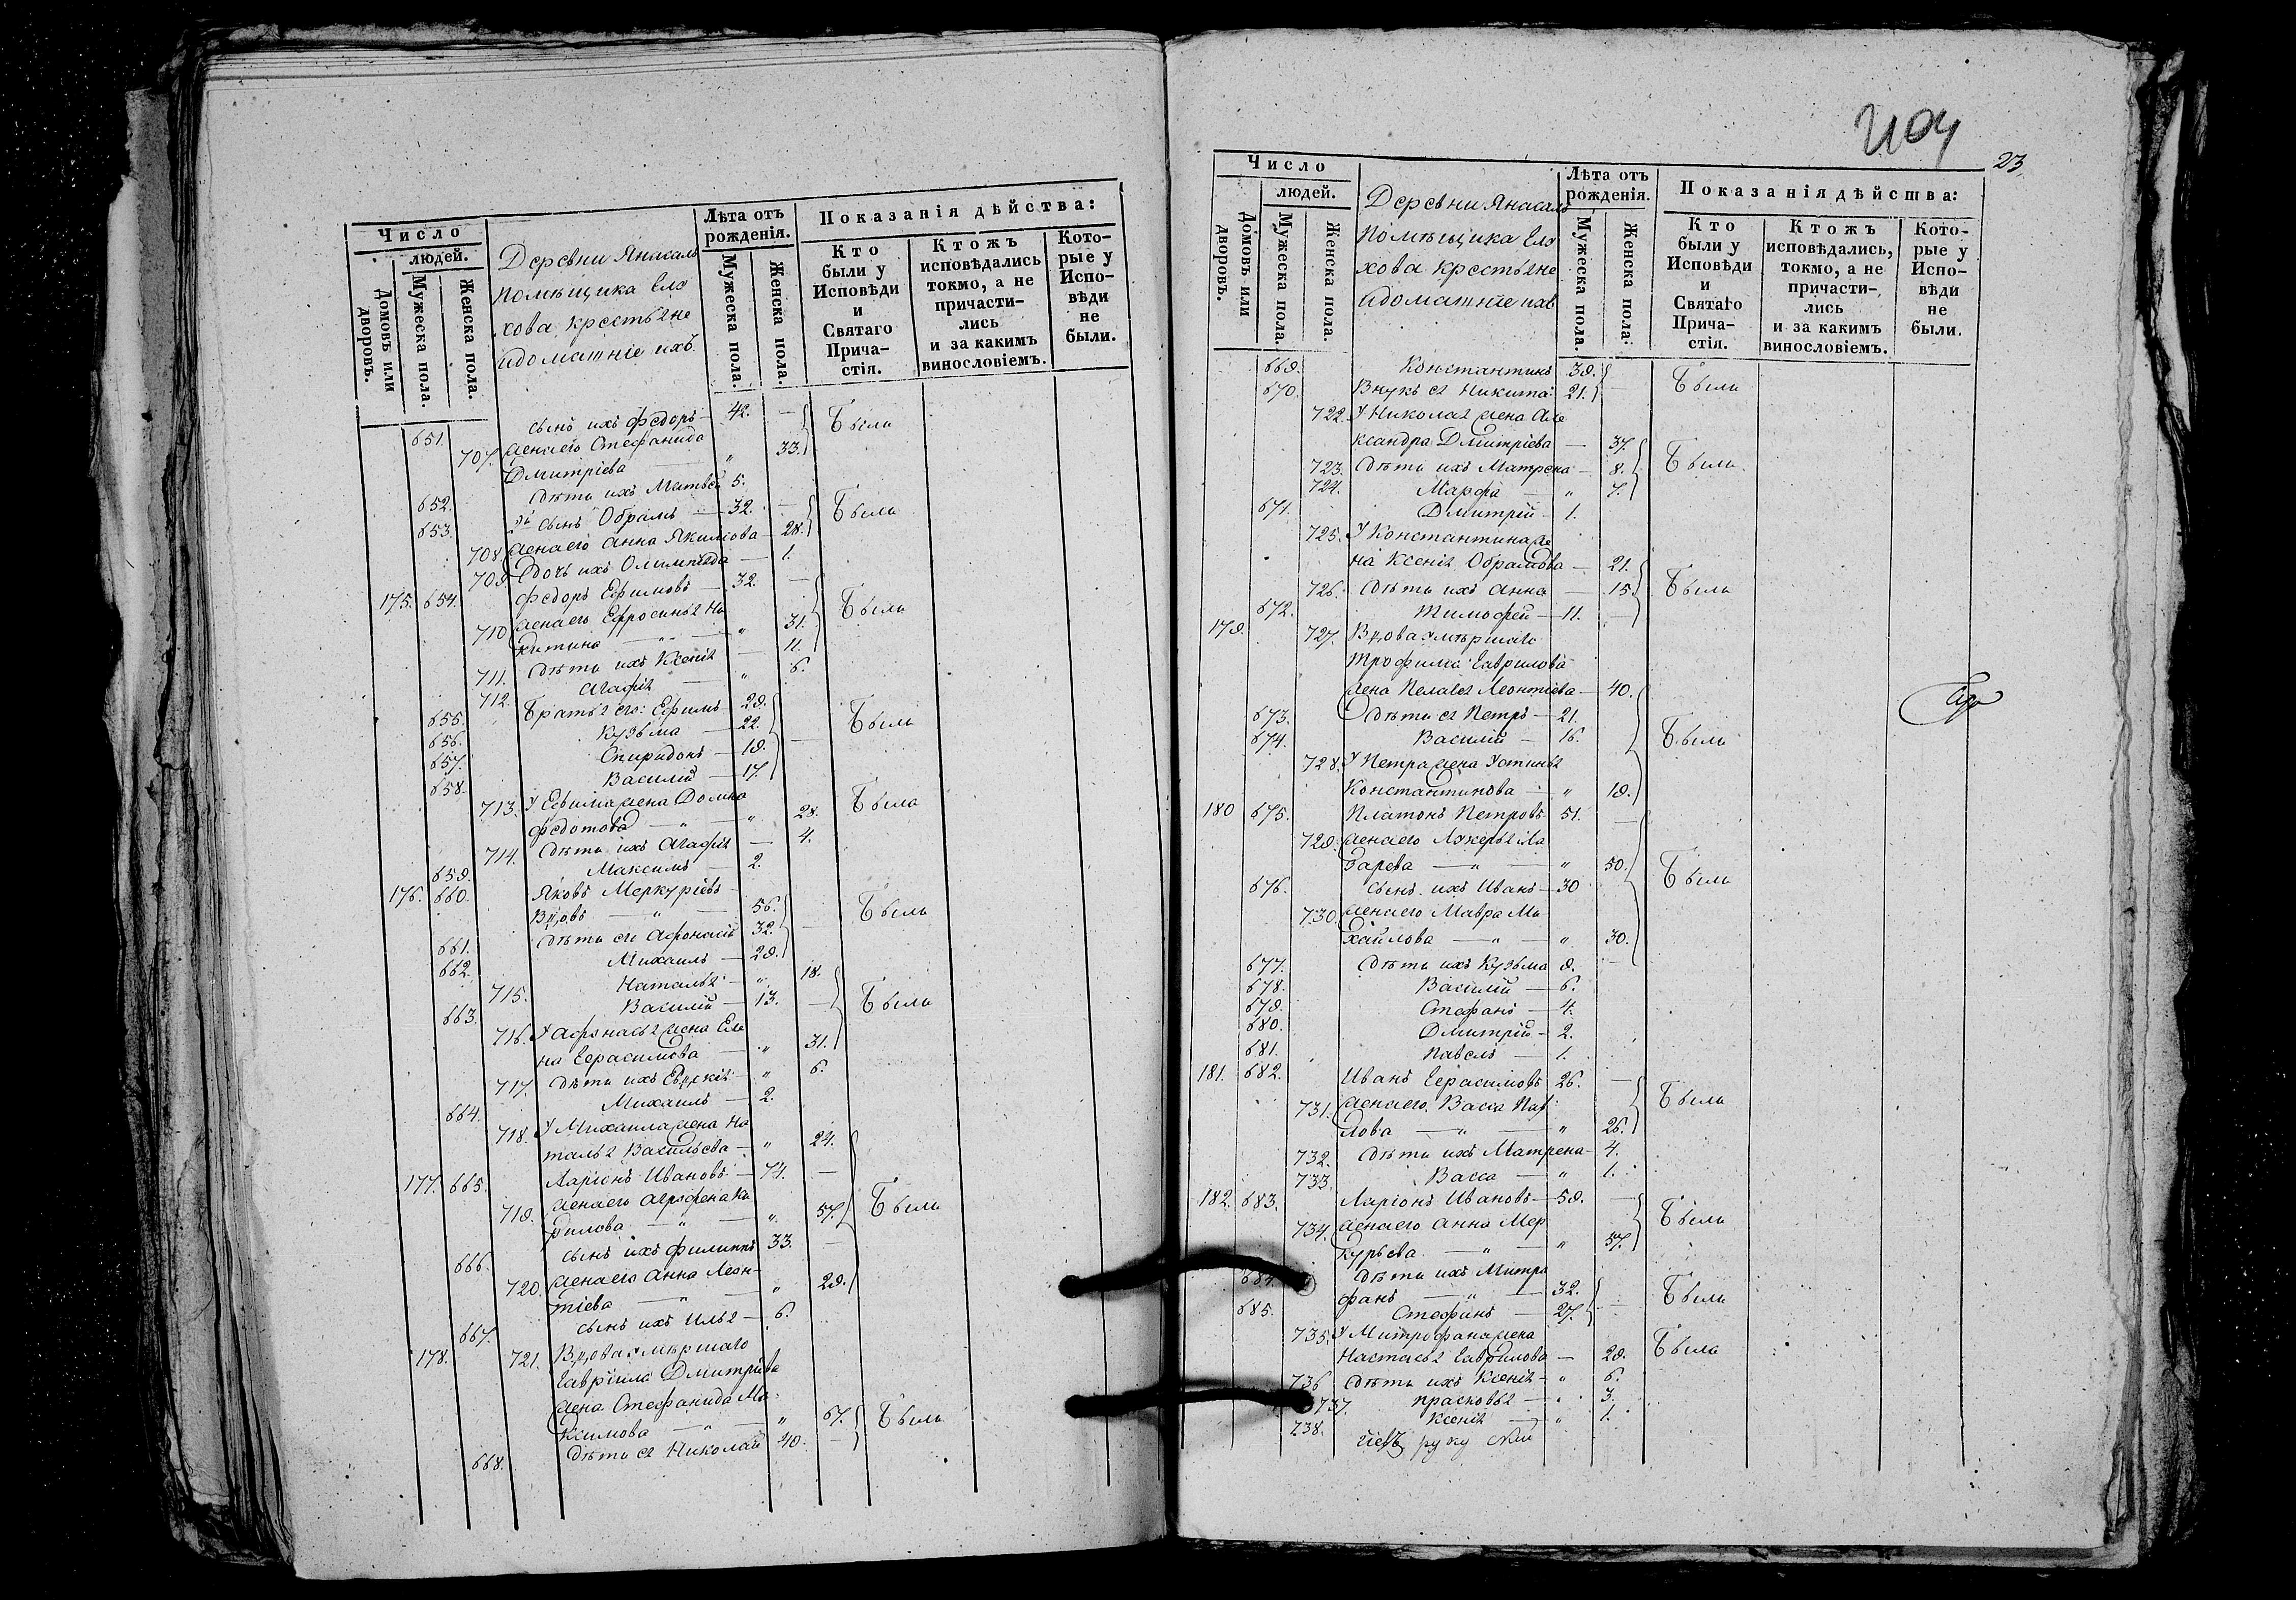 Число
людей.
Домовъ или дворовъ.
Мужеска пола.
Женска пола.
Деревни Янасаль
помѣщика Ела
хова крестьяне
и домашніе ихъ.
Лѣта отъ рожденія.
Мужеска пола.
Женска пола.
Показанія дѣйства:
Кто были у Исповѣди и Святаго Причастія.
Ктожъ исповѣдались токмо, а не причастились и за какимъ винословіемъ.
Которые у Исповѣди не были.
651. сынъ ихъ Федоръ 42. Были
707. жена его Стефанида
Дмитріева " 33.
652. дѣти ихъ Матвей 5.
653. 2й сынъ Обрамъ 32. Были
708. жена его Анна Якимова 28.
709. дочь ихъ Олимпіада 1.
175. 654. Федоръ Ефимовъ 32.
710. жена его Ефросинья Ни
китина " 31. Были
711. дѣти ихъ Ксенія 11.
712. Агафія " 6.
655. Братья его: Ефимъ 29.
656. Кузьма 22. Были
657. Спиридонъ 19.
658. Василій 17.
713. У Ефима жена Домна
Федотова " " 28. Были
714. дѣти ихъ Агафія 4.
659. Максимъ 2.
176. 660. Яковъ Меркуріевъ
Вдовъ " 56. Были
661. дѣти его Афонасій 32.
662. Михаилъ 29.
715. Наталья " 18.
663. Василій 13. Были
716. У Афонасья жена Еле
на Герасимова " 31.
717. дѣти ихъ Евдокія " 6.
664. Михаилъ 2.
718. У Михаила жена На
талья Васильева " 24.
177. 665. Ларіонъ Ивановъ 74.
719. жена его Агрофена Ка
рилова " " 57. Были
666. сынъ ихъ Филиппъ 33.
720. жена его Анна Леон-
тіева " " 29.
667. сынъ ихъ Илья 6.
178. 721. Вдова умѣршаго
Гавріила Дмитріева
жена Стефанида Ма
ксимова " " 67. Были
668. дѣти ея Николай 40.
23.
Число
людей.
Домовъ или дворовъ.
Мужеска пола.
Женска пола.
Деревни Янасаль
помѣщика Ела
хова крестьяне
и домашніе ихъ
Лѣта отъ рожденія.
Мужеска пола.
Женска пола:
Показанія дѣйства:
Кто были у Исповѣди и Святаго Причастія.
Ктожъ исповѣдались, токмо, а не причастились и за какимъ винословіемъ.
Которые у Исповѣди не были.
669. Константинъ 39. Были
670. Внукъ ея Никита 21.
722. У Николая жена Але
ксандра Дмитріева 37.
723. дѣти ихъ Матрена 8. Были
724. Марфа " 7.
671. Дмитрій 1.
725. У Константина же
на Ксенія Обрамова 21.
726. дѣти ихъ Анна 15. Были
672. Тимофей 11.
179. 727. Вдова умѣршаго
Трофима Гаврилова
жена Пелагея Леонтіева 40.
673. дѣти ея Петръ 21.
674. Василій 16. Были
728. У Петра жена Устинья
Константинова " 19.
180 675. Платонъ Петровъ 51.
729. жена его Лукерья Ла
зарева " " 50. Были
676. сынъ ихъ Иванъ 30
730. жена его Мавра Ми
хайлова " " 30.
677. дѣти ихъ Кузьма 9.
678. Василій 6.
679. Стефанъ 4.
680. Дмитрій 2.
681. Павелъ 1.
181. 682. Иванъ Герасимовъ 26.
731. жена его Васса Пав Были
лова " " 26.
732. дѣти ихъ Матрена 4.
733. Васса " 1.
182. 683. Ларіонъ Ивановъ 59.
734. жена его Анна Мер Были
курьева " " 57.
684. дѣти ихъ Митро
фанъ " 32. Были
685. Стефанъ 27.
735. У Митрофана жена
Настасья Гаврилова 29. Была
736 дѣти ихъ Ксенія " 6.
737. Прасковья " 3.
738. Ксенія " 1.
руку